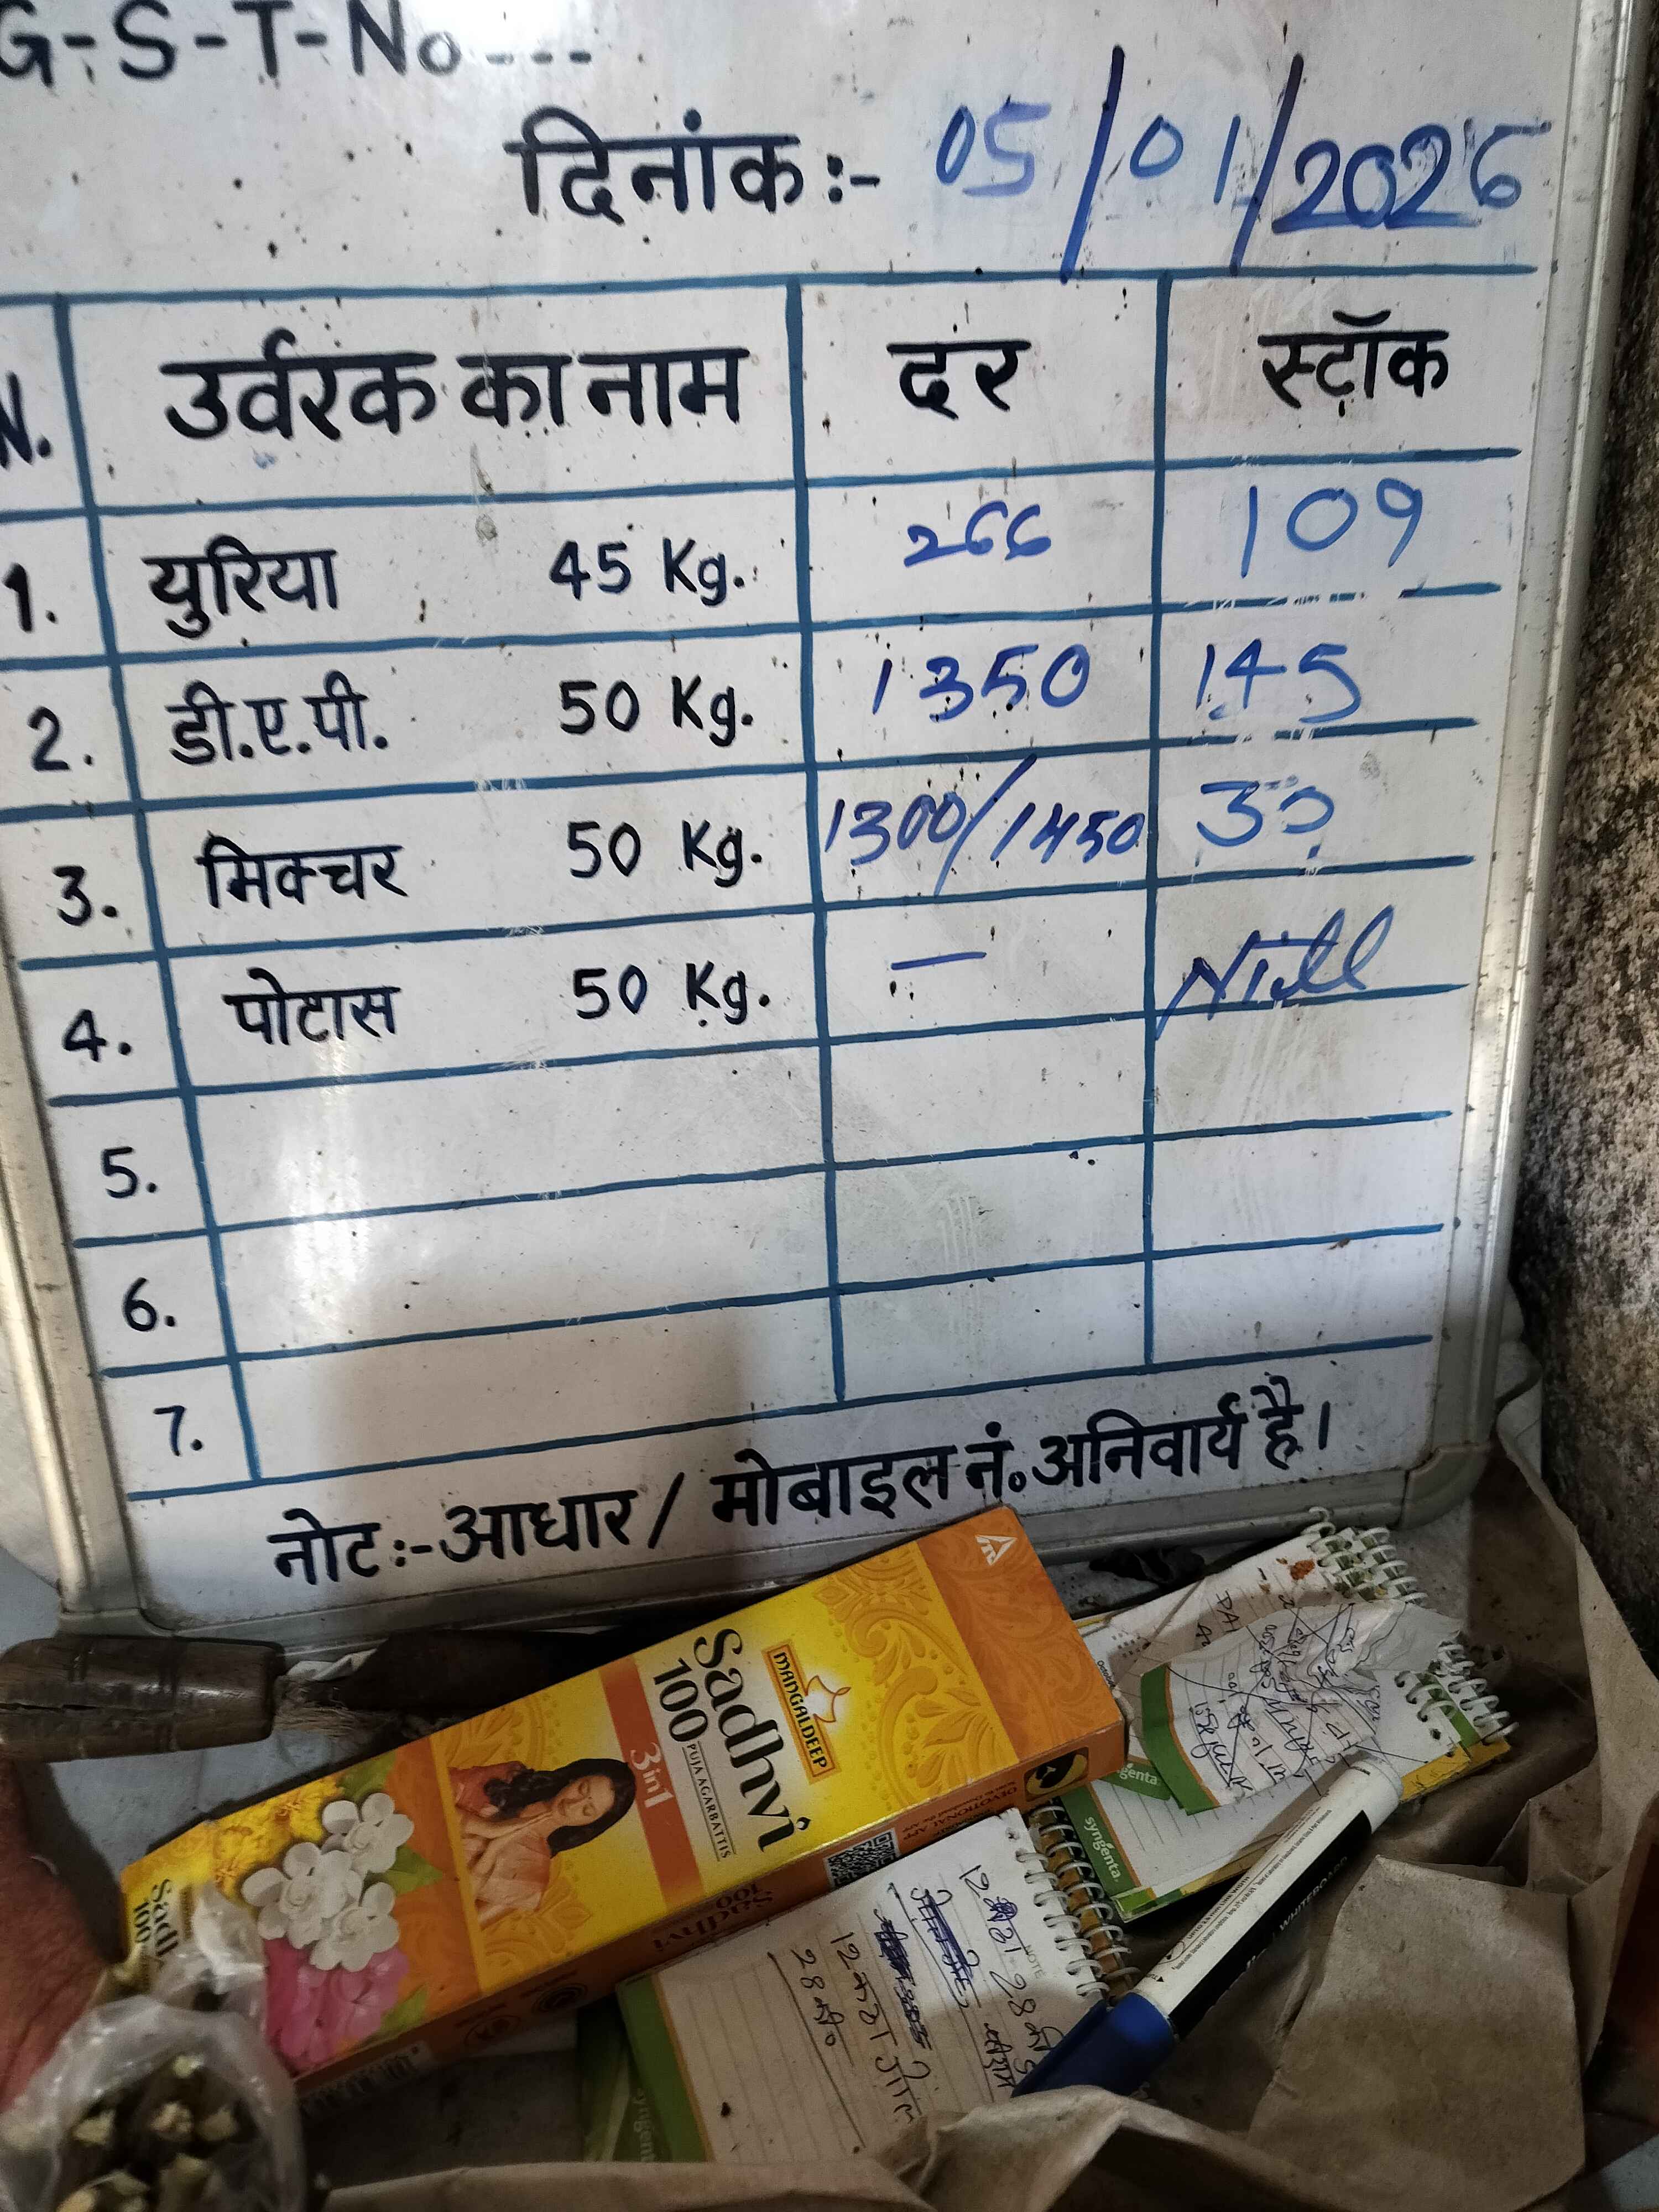 G-S-T-No---
दिनांक:- 05/01/2026
N. उर्वरक का नाम दर स्टॉक
1. युरिया 45 Kg. 266 109
2. डी.ए.पी. 50 Kg. 1350 145
3. मिक्चर 50 Kg. 1300/1450 30
4. पोटास 50 Kg. — Nill
5.
6.
7.
नोट:-आधार / मोबाइल नं. अनिवार्य है।
MANGALDEEP
Sadhvi
100 PUJA AGARBATTIS
3in1
Sadhvi
100
DEVOTIONAL APP
syngenta.
NOTE
WHITEBOARD